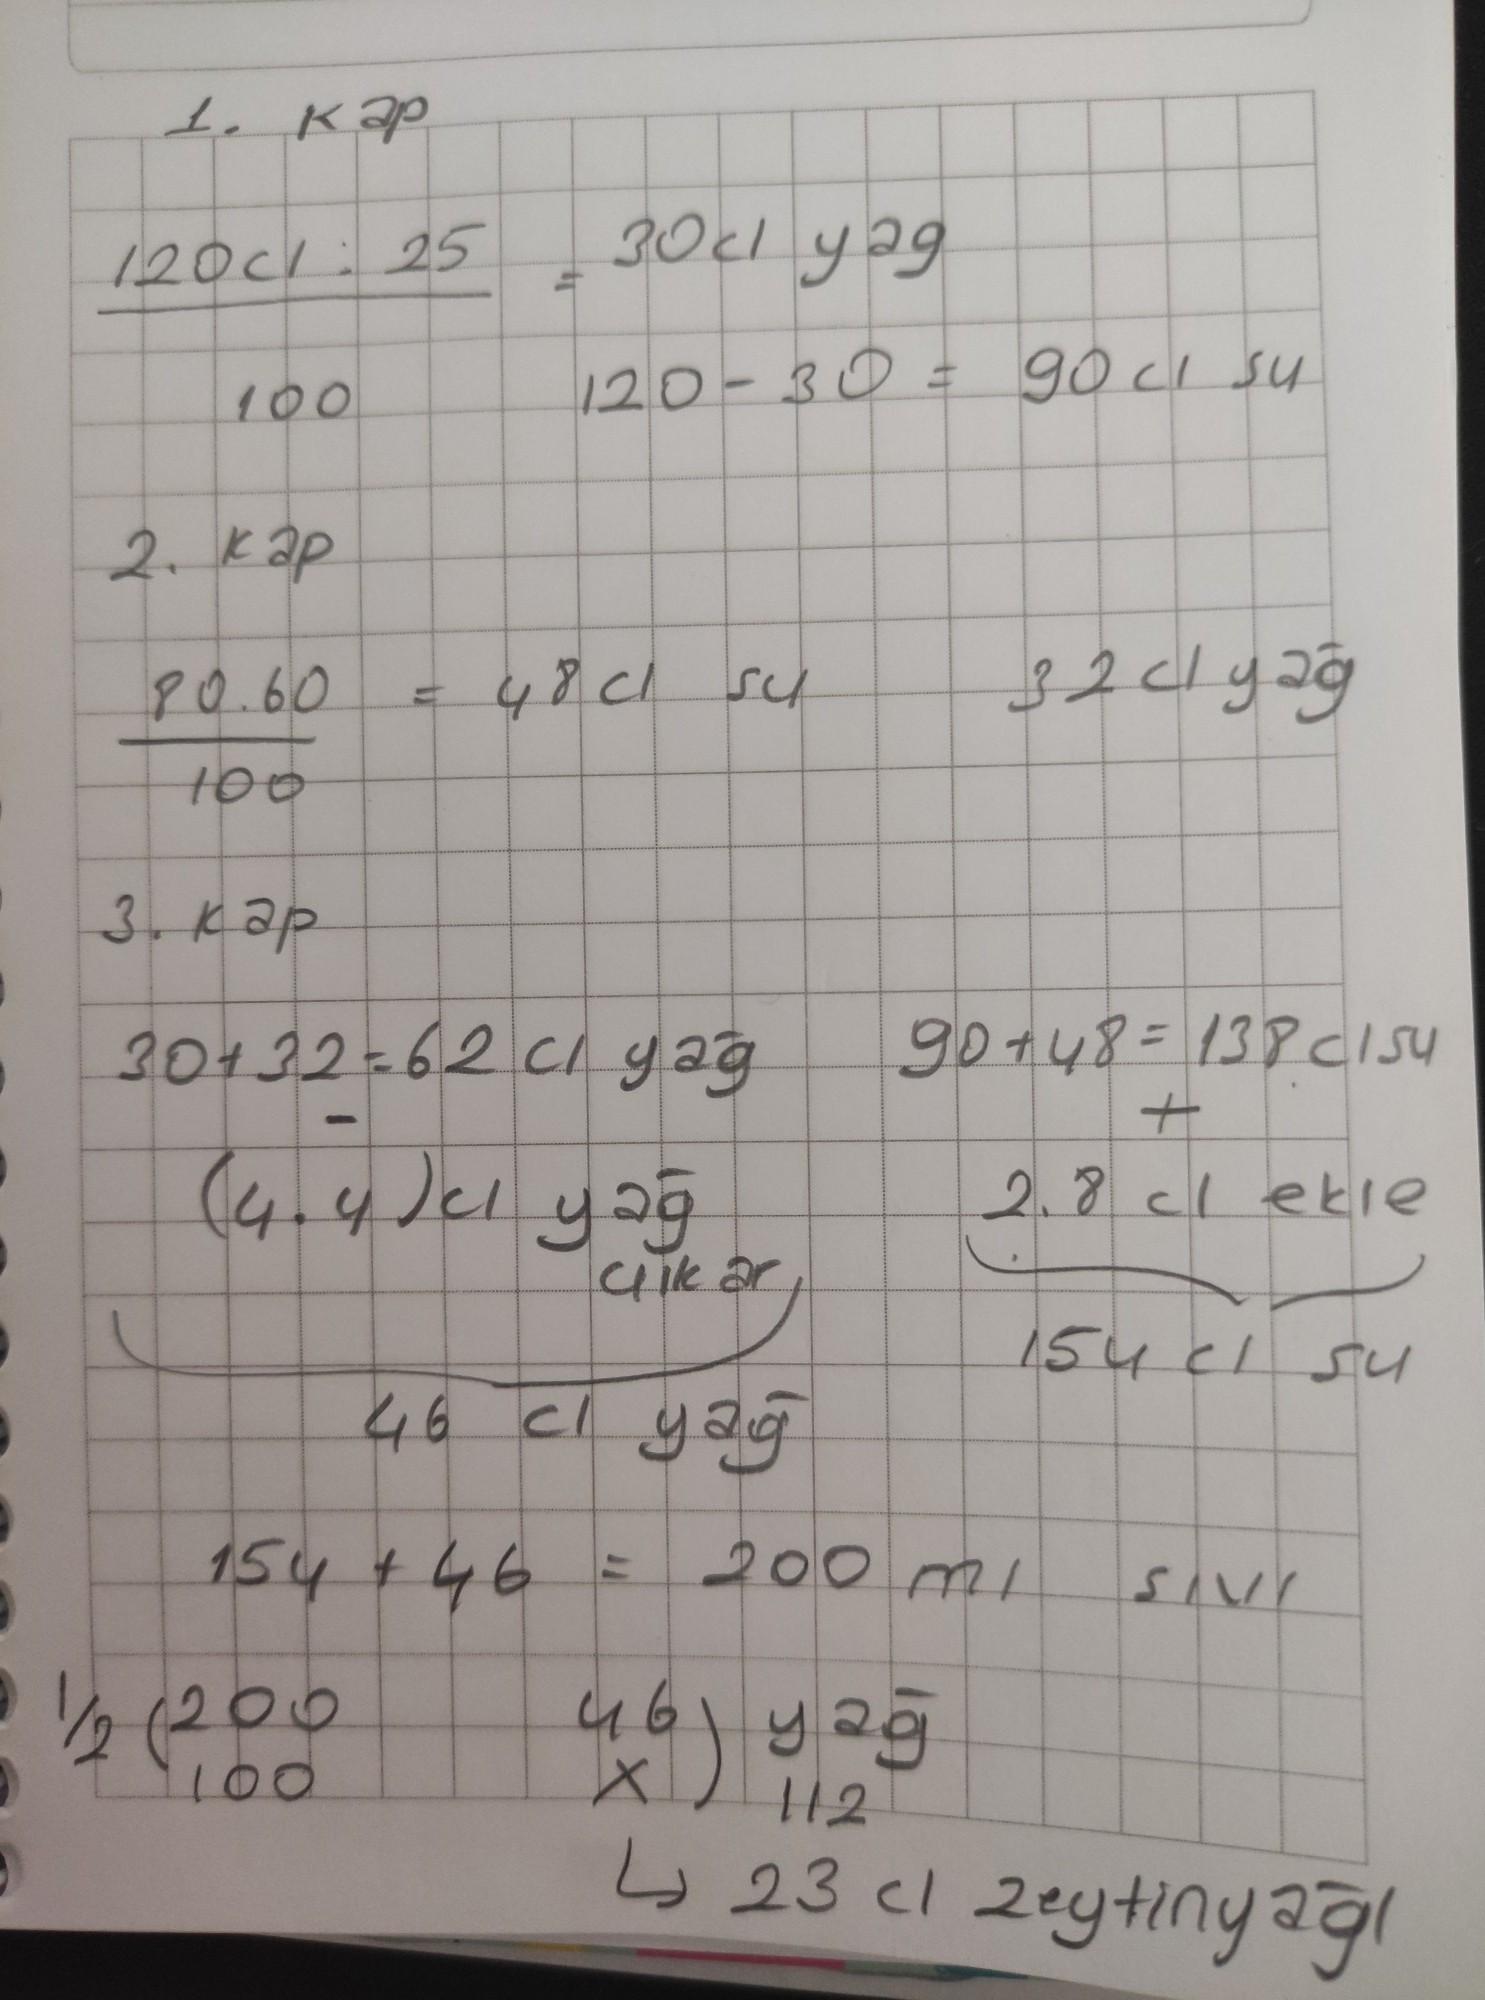 1. kap
120cl : 25 = 30cl yag
100 120 - 30 = 90 cl su
2. kap
80.60 = 48 cl su 32 cl yağ
100
3. kap
30+32=62 cl yağ 90+48=138 cl su
- +
(4.4) cl yağ 2.8 cl ekle
çıkar
46 cl yağ 154 cl su
154 + 46 = 200 ml sıvı
1/2 (200 46) yağ
100 x 112
↳ 23 cl zeytinyağı